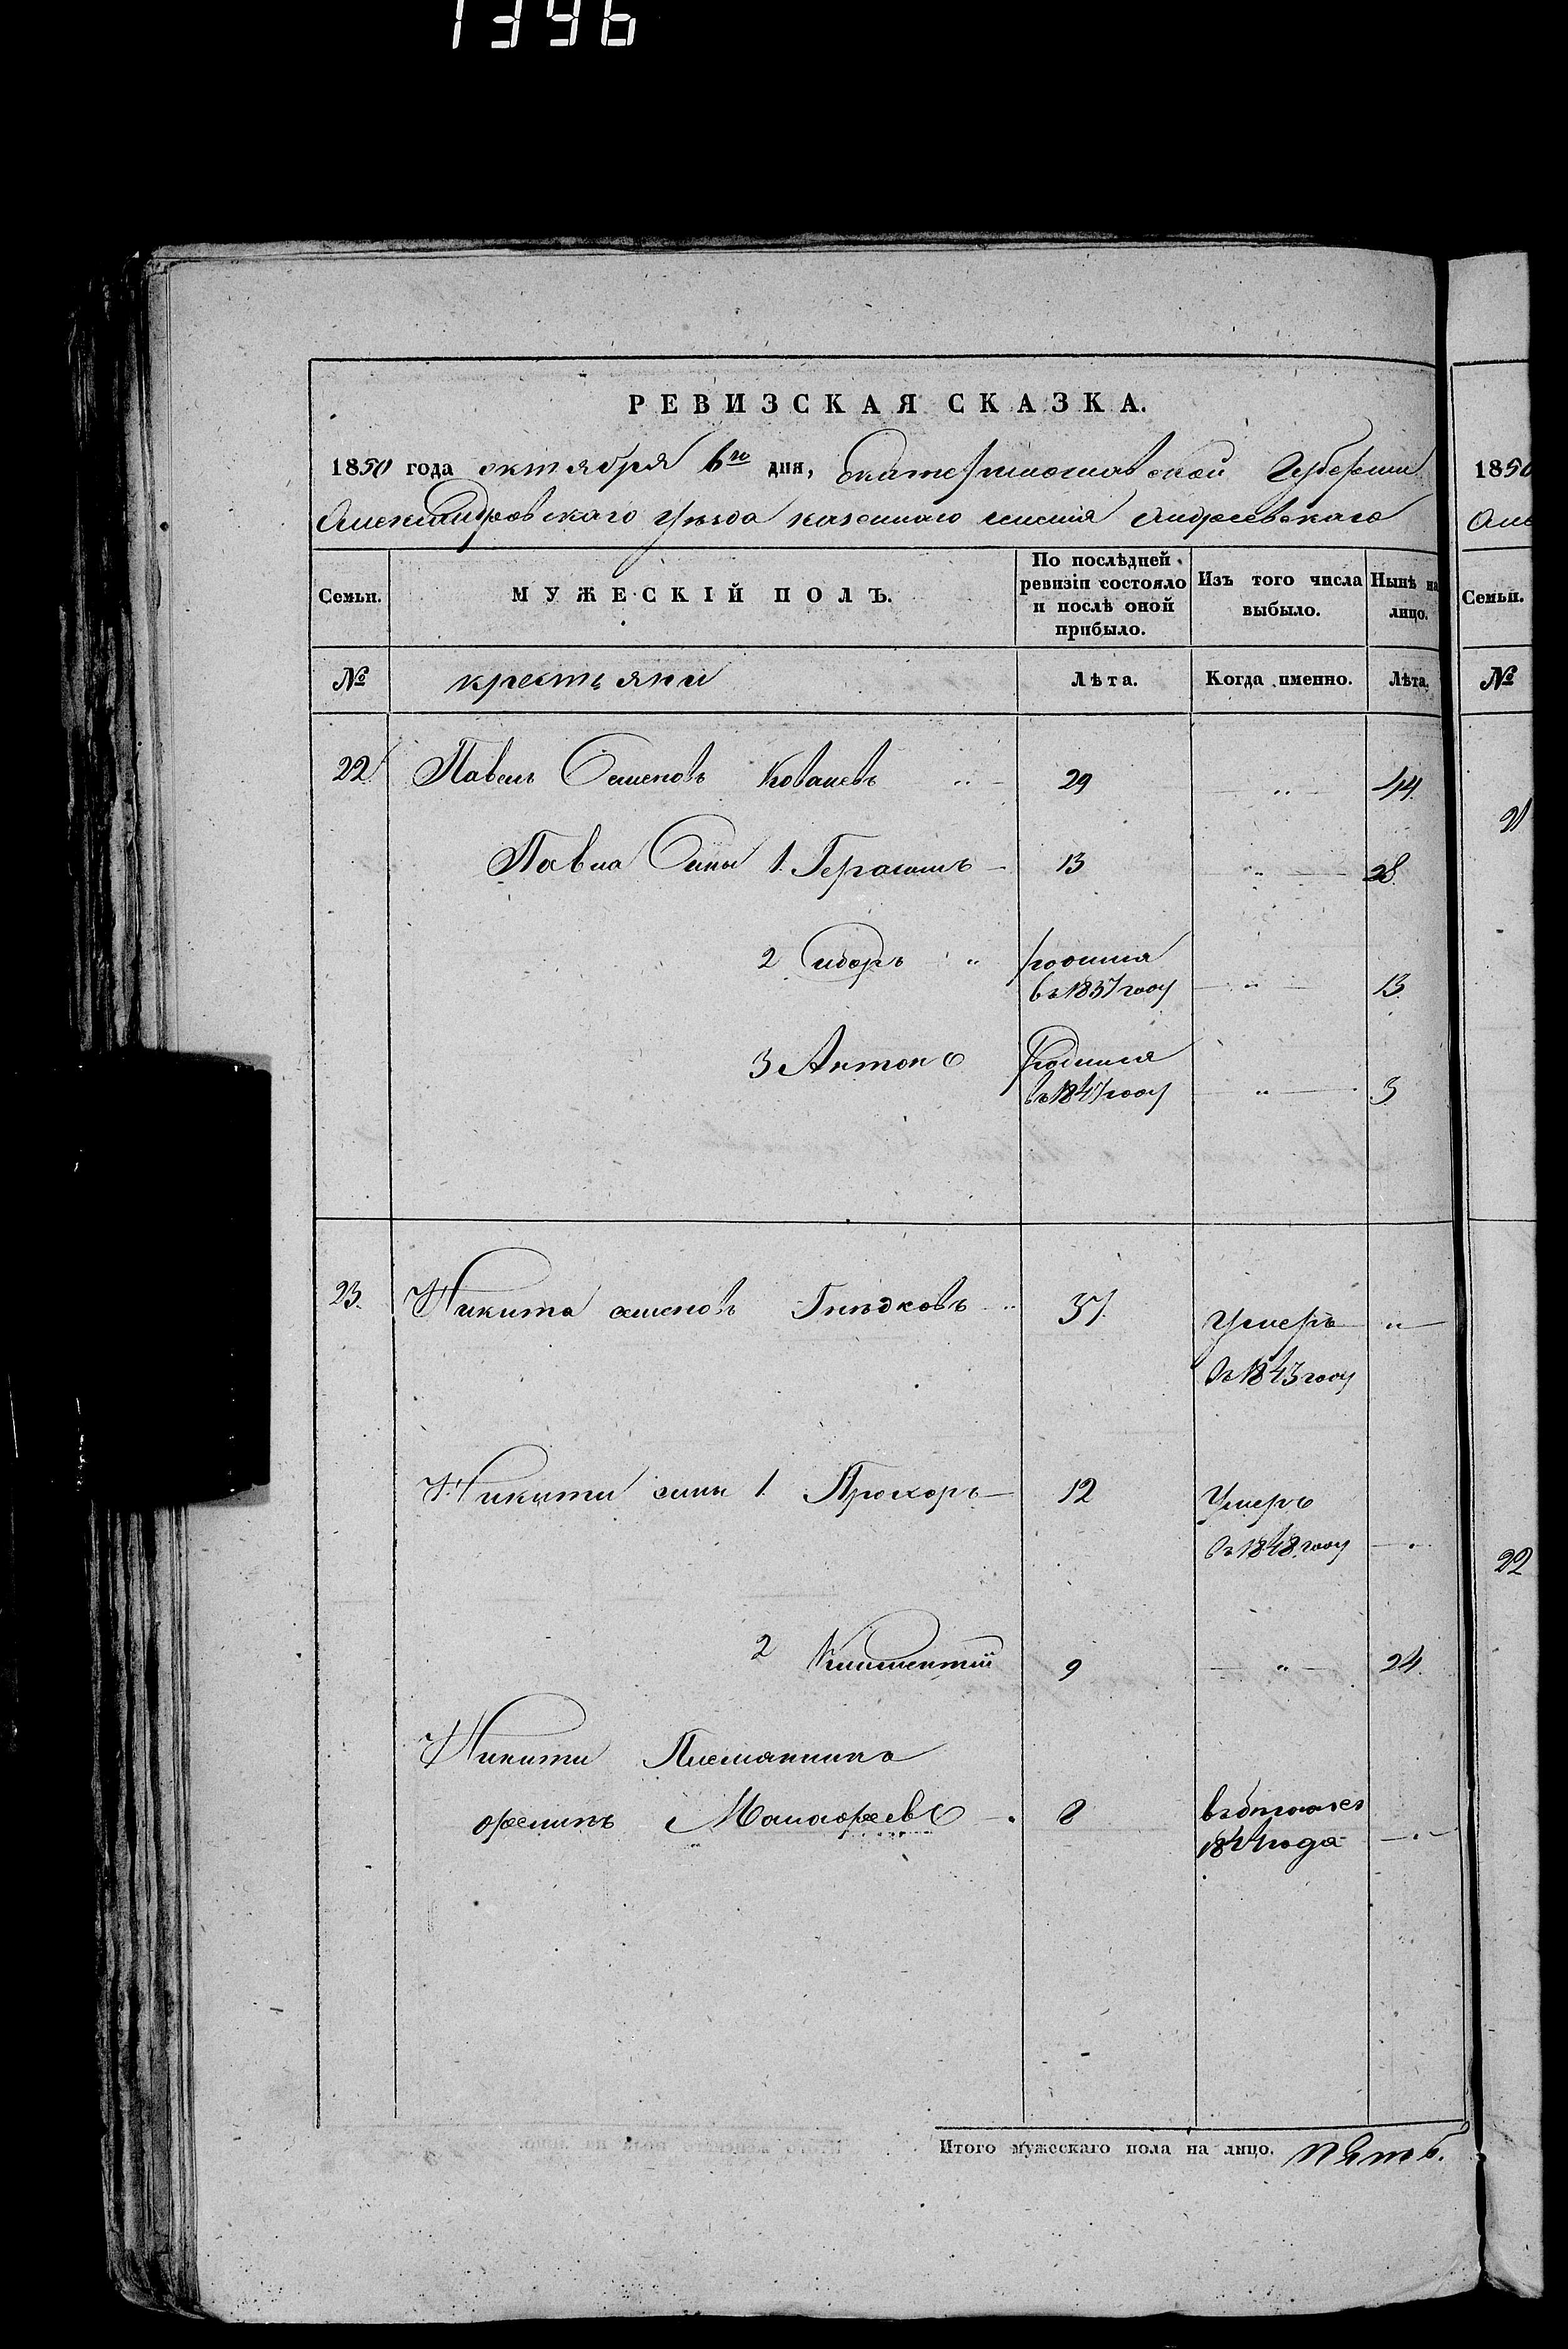 1396
РЕВИЗСКАЯ СКАЗКА.
1850 года октября 6го дня, Екатеринославской Губернии
Александровскаго Уѣзда казеннаго селенія Андреевскаго
Семьи. МУЖЕСКІЙ ПОЛЪ. По послѣдней ревизіи состояло и послѣ оной прибыло. Изъ того числа выбыло. Нынѣ на лицо.
№ крестьяни Лѣта. Когда именно. Лѣта.
22 Павелъ Семеновъ Ковалевъ 29 44
Павла Сины 1. Герасимъ 13 28
2 Сидоръ родился въ 1837 году 13
3 Антонъ Родился въ 1847 году 3
23. Никита семеновъ Гнѣдковъ 37 Умеръ въ 1843 году
Никити сини 1. Прохоръ 12 Умеръ въ 1848 году
2 Климентий 9 24
Никити Племянникъ
8 1844 года
Итого мужескаго пола на лицо. пять.
1850
Але
Семьи.
№
21
22